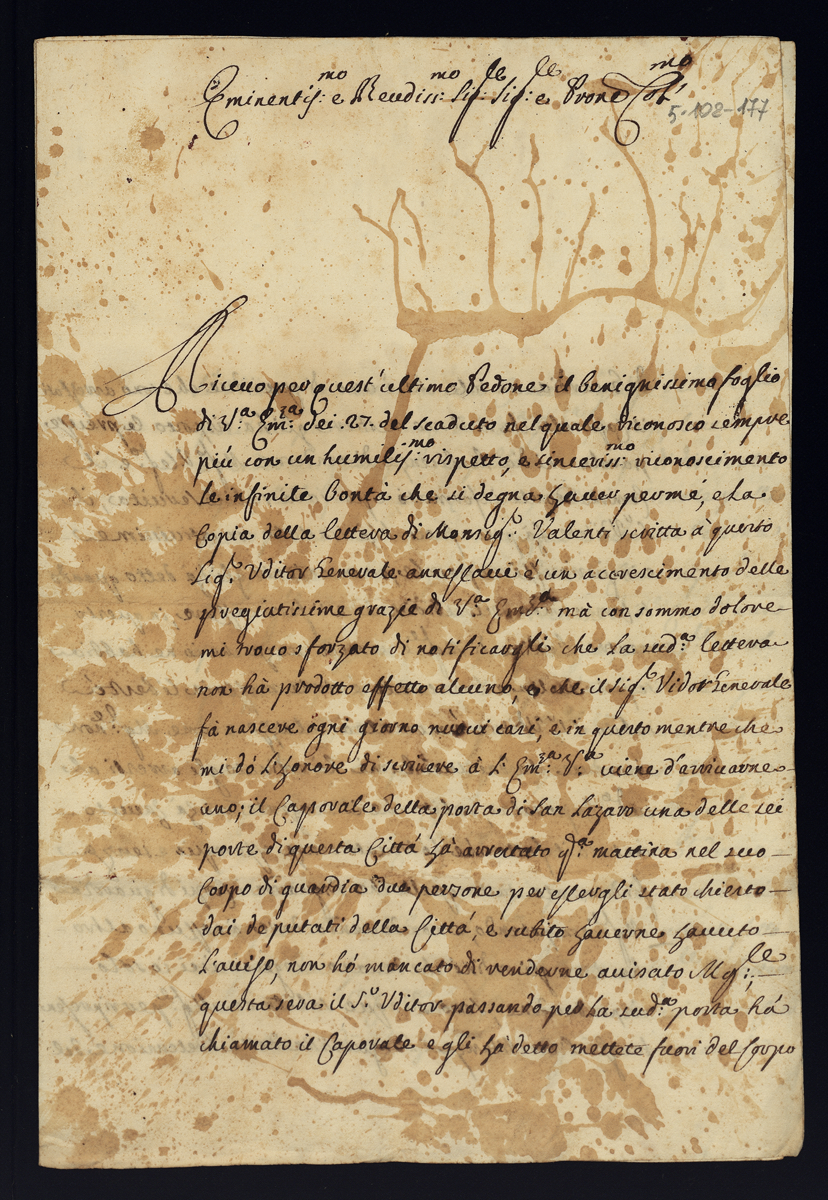 Eminentis:mo e Reudiss:mo Sig:le Sig:le e Prone Col:mo
5-108-177
Riceuo per quest'ultimo Pedone il benignissimo foglio
di V:a Em:za dei 27. del scaduto nel quale riconosco sempre
più con un humilis:mo rispetto, e sinceriss:mo riconoscimento
le infinite bontà che si degna hauer per mé, e la
Copia della lettera di Monsig:r Valenti scritta à questo
Sig:r Vditor Generale annessaui é un accrescimento delle
pregiatissime grazie di V:a Em:za mà con sommo dolore
mi trouo sforzato di notificargli che la sud:a lettera
non hà prodotto effetto alcuno, e che il Sig:r Vditor Generale
fà nascere ogni giorno nuoui casi, e in questo mentre che
mi dó l'honore di scriuere à L'Em:za V:a uiene d'arriuarne
uno; il Caporale della porta di San Lazaro una delle sei
porte di questa Città hà arrestato q:ta mattina nel suo
Corpo di guardia due persone per essergli stato chiesto
dai deputati della Città, e subito hauerne hauuto
L'auiso, non hó mancato di renderne auisato M:gle,
questa sera il S:r Vditor passando per la sud:a porta há
chiamato il Caporale e gli hà detto mettete fuori del Corpo